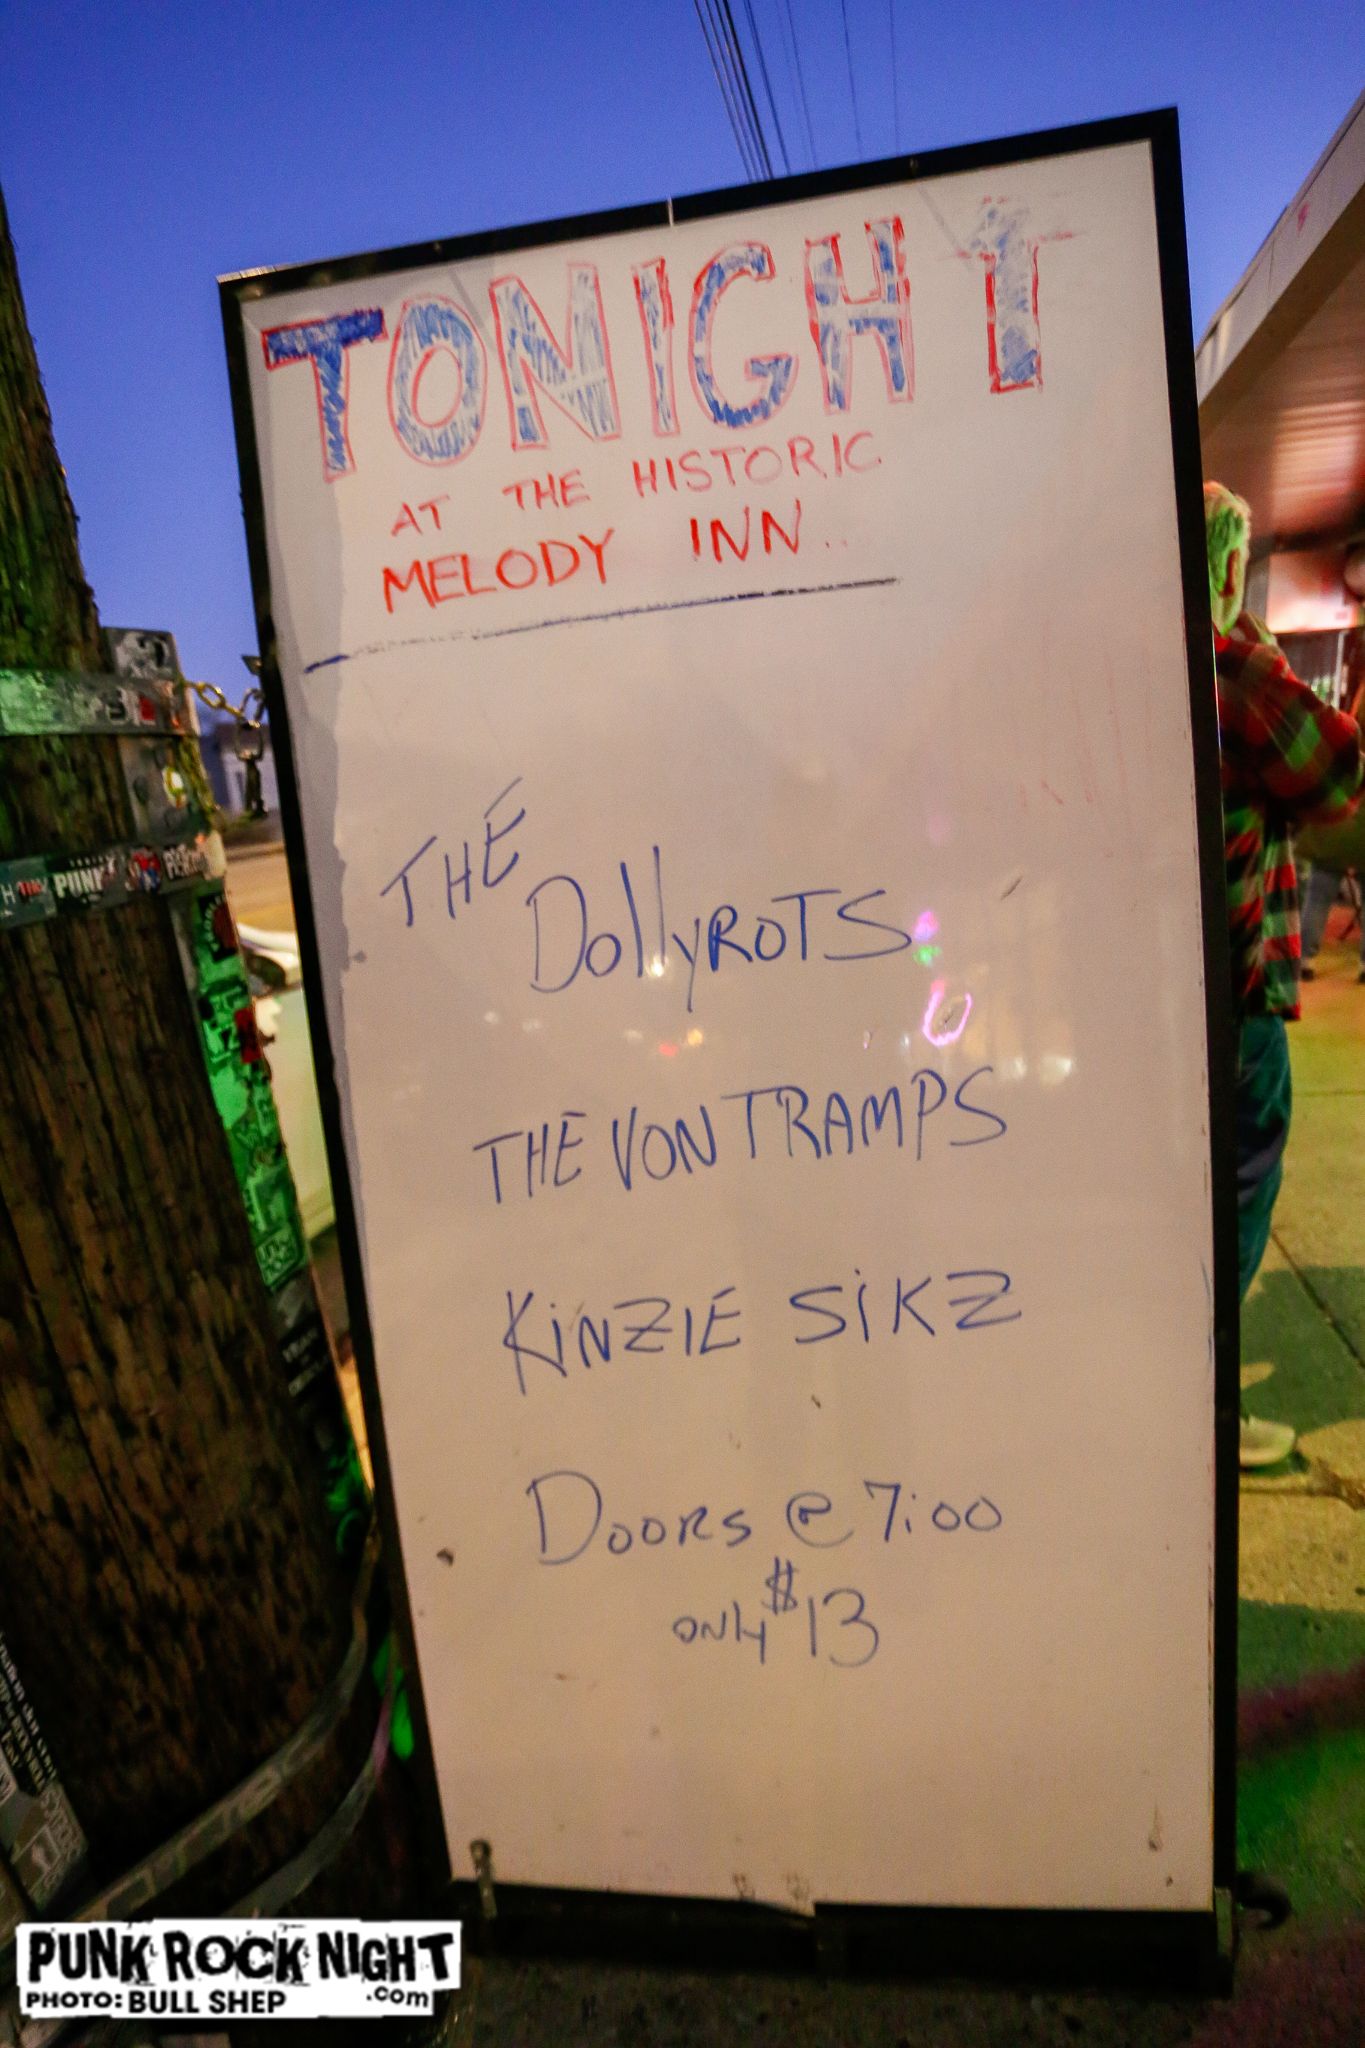 TONIGHT
AT THE HISTORIC
MELODY INN..
THE
DollyROTS
THE VON TRAMPS
KiNZIE SiKZ
DOORS @ 7:00
ONly $13
PUNK
PUNK ROCK NIGHT
.com
PHOTO: BULL SHEP